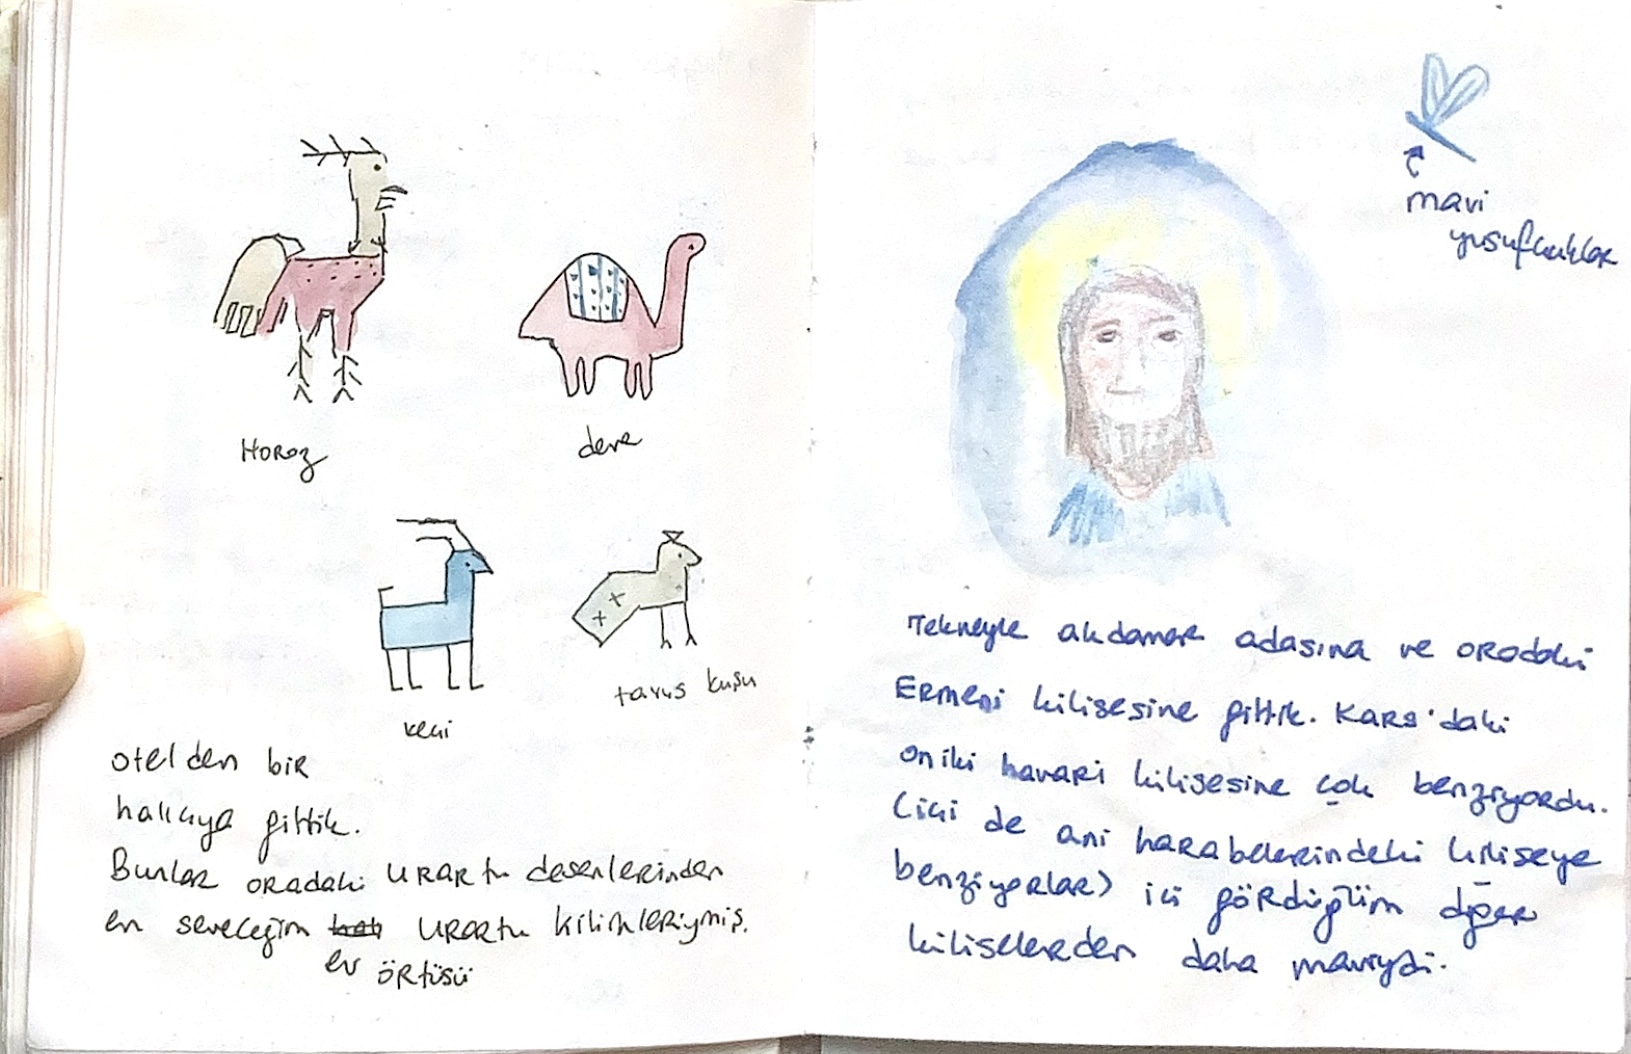 Horoz
deve
keçi
tavus kuşu
otelden bir
halıcıya gittik.
Bunlar oradaki Urartu desenlerinden
en seveceğim Urartu kilimleriymiş.
ev örtüsü
mavi
yusufcuklar
Tekneyle akdamar adasına ve oradaki
Ermeni kilisesine gittik. Kars'daki
on iki havari kilisesine çok benziyordu.
(içi de ani harabelerindeki kiliseye
benziyorlar) içi gördüğüm diğer
kiliselerden daha maviydi.